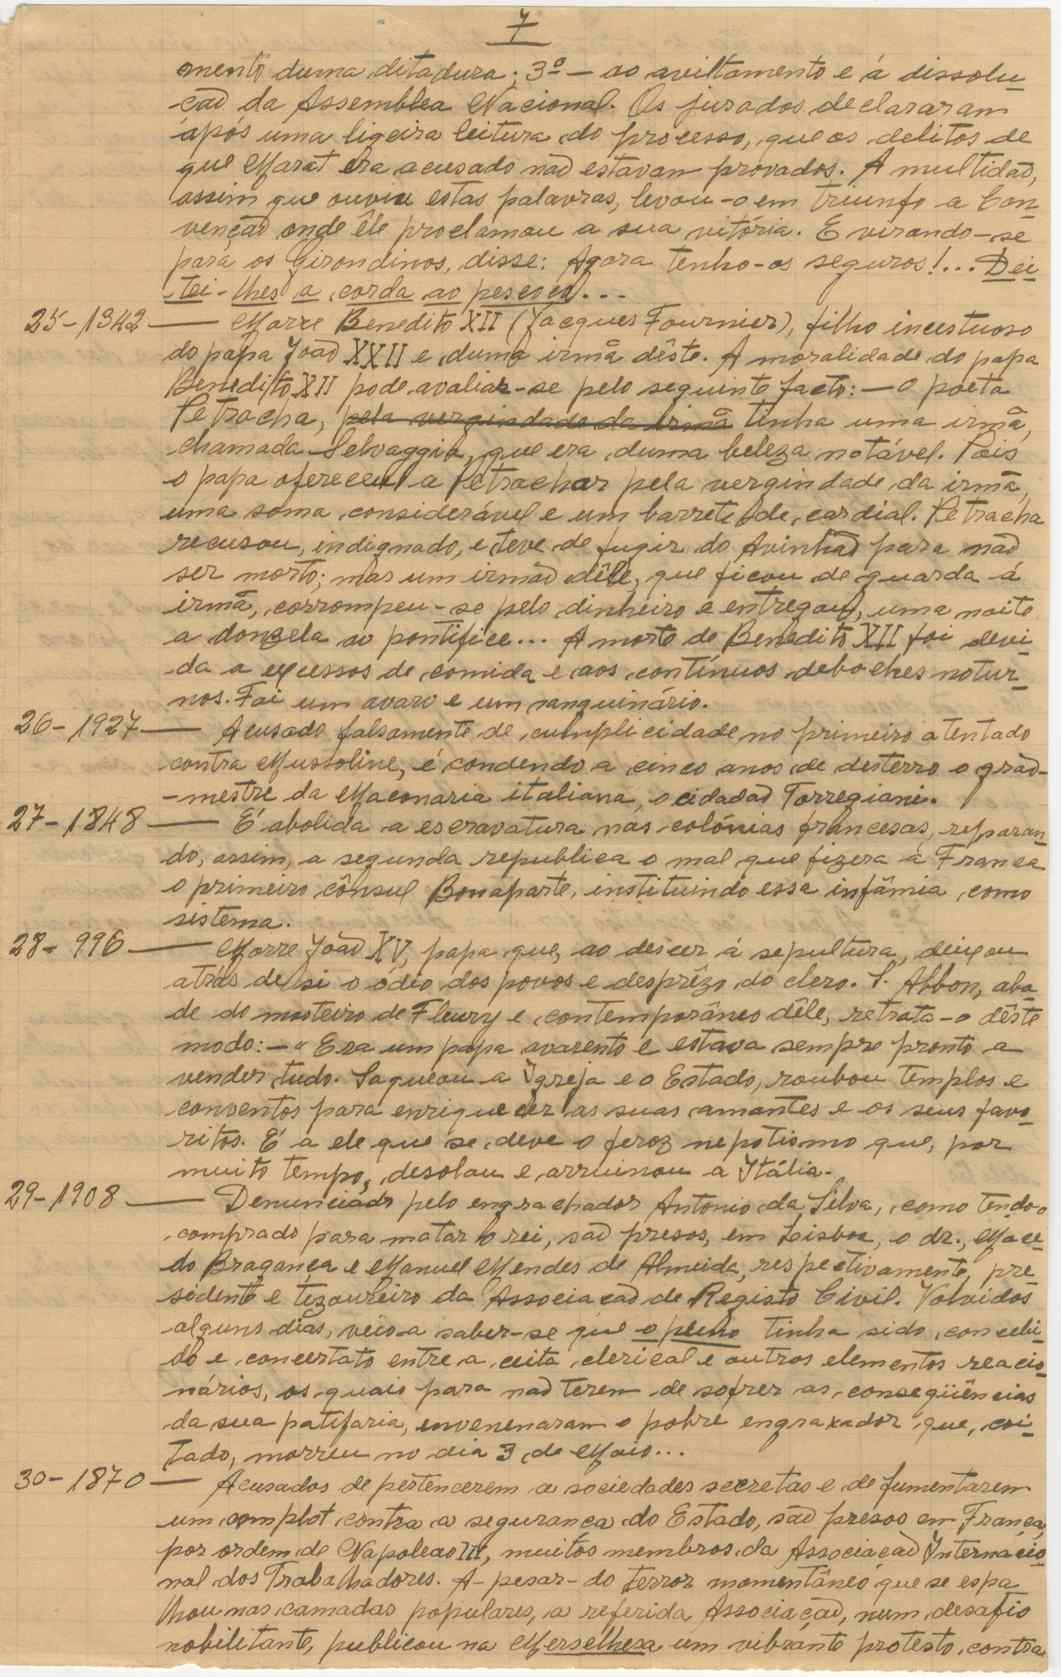 7
mento duma ditadura; 3º — ao aviltamento e á dissolu-
ção da Assemblea Nacional. Os jurados declararam
após uma ligeira leitura do processo, que os delitos de
que Marat era acusado não estavam provados. A multidão,
assim que ouviu estas palavras, levou-o em triunfo a Con-
venção onde êle proclamou a sua vitória. E virando-se
para os Girondinos, disse: Agora tenho-os seguros!... Dei-
tei-lhes a corda ao pescoço...
25-1342 — Morre Benedito XII (Jacques Fournier), filho incestuoso
do papa João XXII e duma irmã dêste. A moralidade do papa
Benedito XII pode avaliar-se pelo seguinte facto: — o poeta
Petracha, pela vergindade da irmã tinha uma irmã,
chamada Selvaggia, que era duma beleza notável. Pois
o papa ofereceu a Petrachar pela vergindade da irmã,
uma soma considerável e um barrete de cardial. Petracha
recusou, indignado, e teve de fugir do Avinhão para não
ser morto; mas um irmão dêle, que ficou de guarda á
irmã, corrompeu-se pelo dinheiro e entregou, uma noite
a donzela ao pontífice... A morte de Benedito XII foi devi-
da a excessos de comida e aos contínuos deboches notur-
nos. Foi um avaro e um sanguinário.
26-1927 — Acusado falsamente de cumplicidade no primeiro atentado
contra Mussoline, é condendo a cinco anos de desterro o grão-
-mestre da Maçonaria italiana, o cidadão Torregiani.
27-1848 — É abolida a escravatura nas colónias francesas, reparan-
do, assim, a segunda republica o mal que fizera a França
o primeiro cônsul Bonaparte, instituindo essa infâmia como
sistema.
28-996 — Morre João XV, papa que, ao descer á sepultura, deixou
atrás de si o ódio dos povos e desprêzo do clero. S. Abbon, aba-
de do mosteiro de Fleury e contemporâneo dêle, retrata-o dêste
modo: — « Era um papa avarento e estava sempre pronto a
vender tudo. Saqueou a Igreja e o Estado, roubou templos e
conventos para enriquecer as suas amantes e os seus favo-
ritos. É a ele que se deve o feroz nepotismo que, por
muito tempo, desolou e arruinou a Itália.
29-1908 — Denunciado pelo engrachador Antonio da Silva, como tendo-o
comprado para matar o rei, são presos, em Lisboa, o dr., Mace-
do Bragança e Manuel Mendes de Almeida, respectivamente, pre-
sidente e tezoureiro da Associação de Registo Civil. Volvidos
alguns dias, veio a saber-se que o plano tinha sido concebi-
do e concertato entre a ceita clerical e outros elementos reacio-
nários, os quais para não terem de sofrer as conseqüências
da sua patifaria, envenenaram o pobre engraxador que, coi-
tado, morreu no dia 3 de Maio...
30-1870 — Acusados de pertencerem a sociedades secretas e de fumentarem
um complot contra a segurança do Estado, são presos em França,
por ordem de Napoleao III, muitos membros da Associação Internacio-
nal dos Trabalhadores. A-pesar-do terror momentâneo que se espa
lhou nas camadas populares, a referida Associação, num desafio
nobilitante, publicou na Merselhesa um vibrante protesto contra